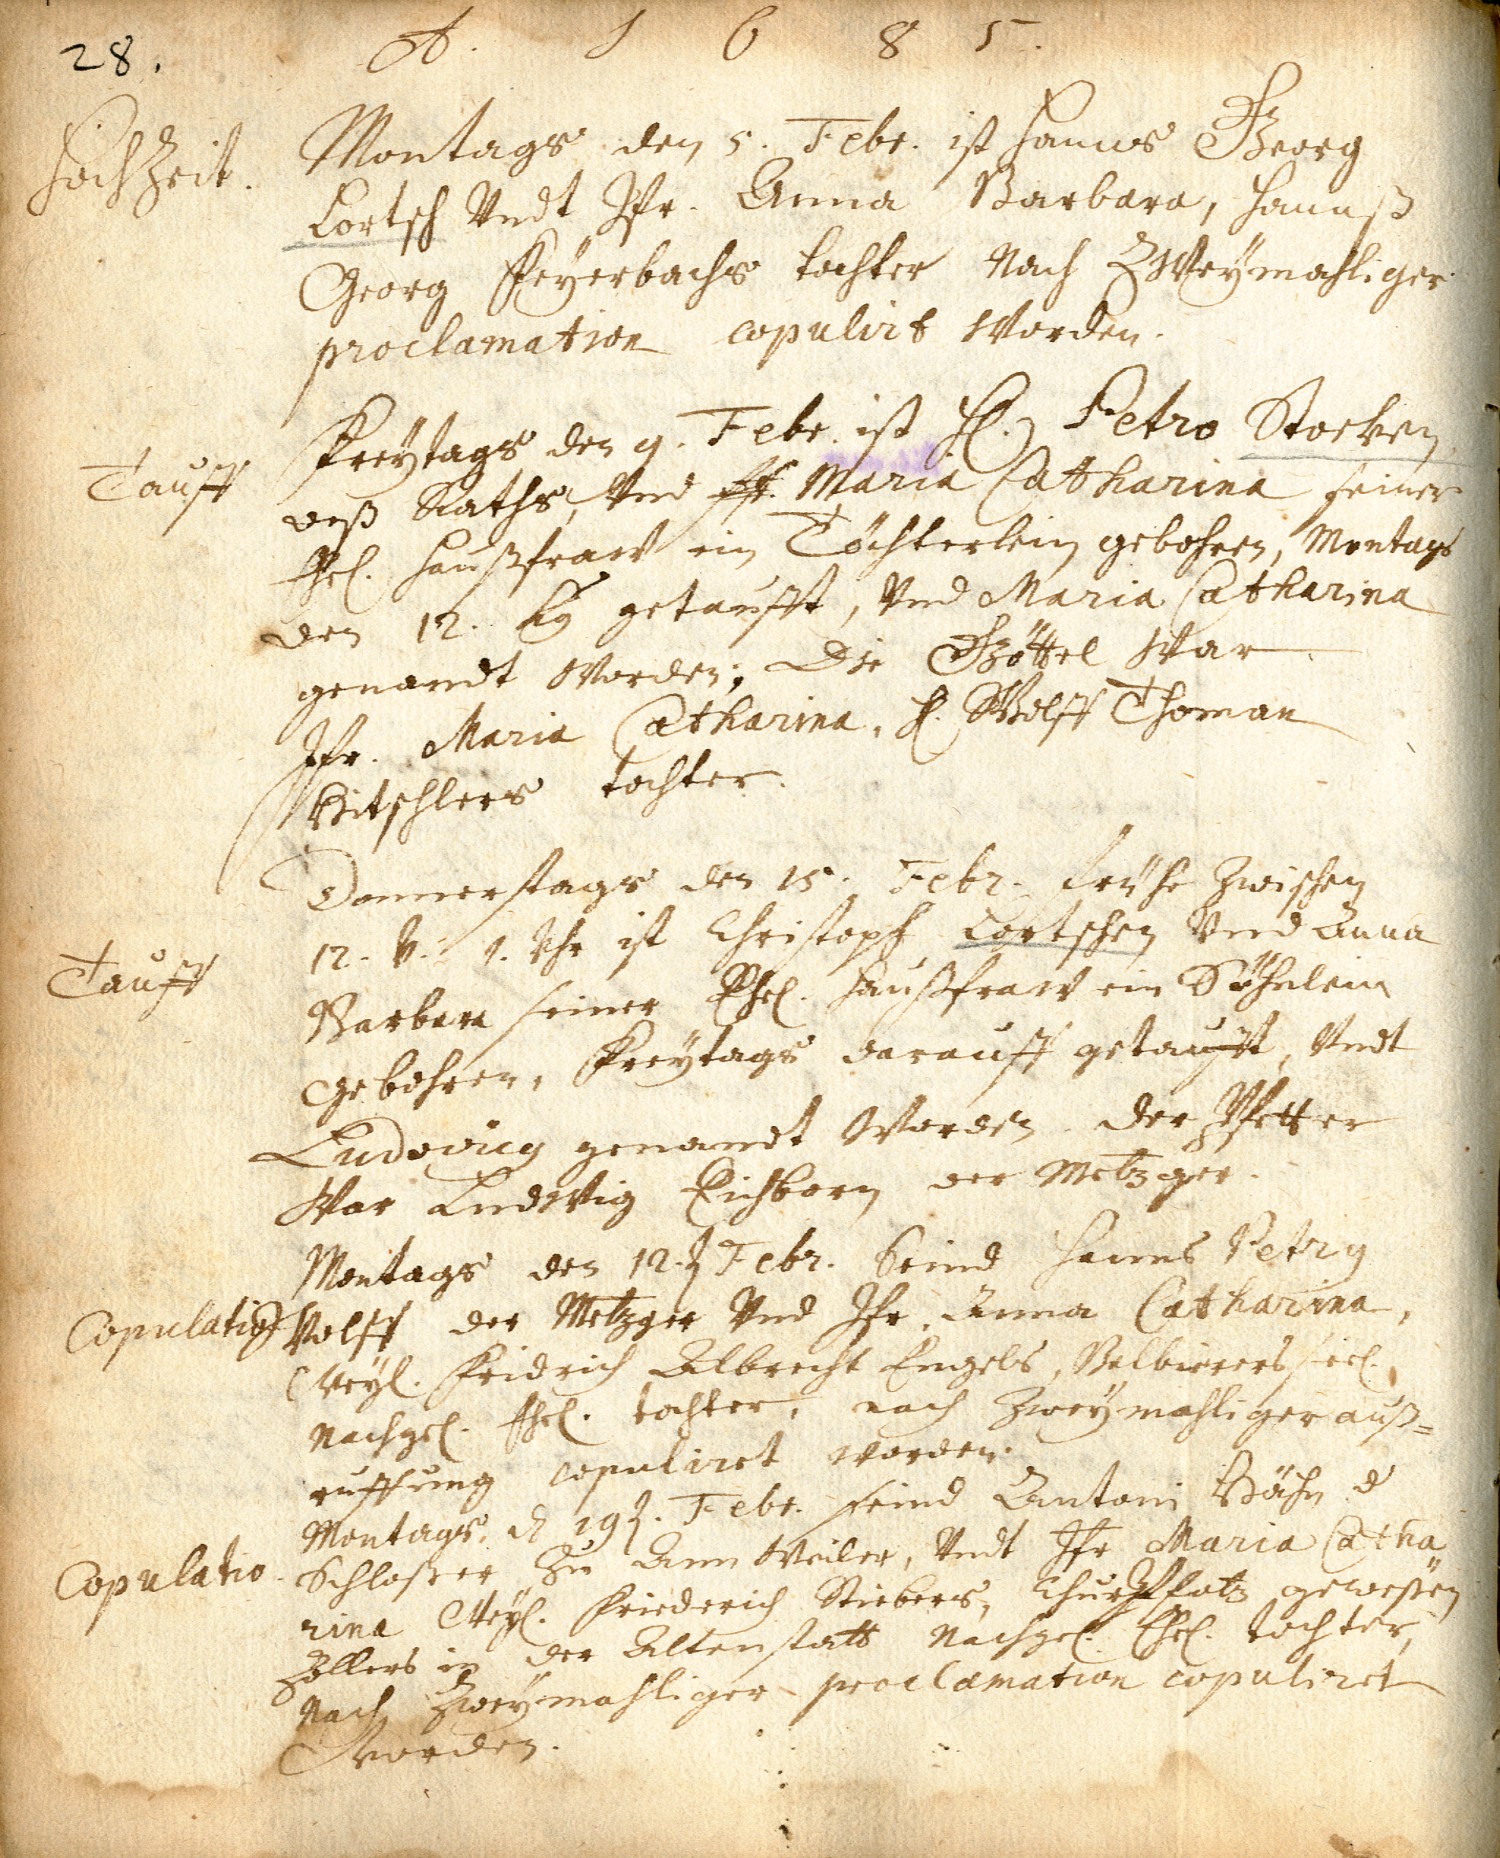 28.
A. 1 6 8 5.
HochZeit.
Montags den 5. Febr. ist Hanns Georg
Lortsch Undt Jfr. Anna Barbara, Hannß
Georg Feyerbachs tochter Nach Zweymahliger
proclamation copulirt Worden.
Tauff
Freytags den 9. Febr. ist H. Petro Stocken
deß Raths, Und fr. Maria Catharina seiner
Ehel. Haußfraw ein Töchterlein gebohren, Montags
den 12. getaufft, Und Maria Catharina
genandt Worden; Die Göttel War
Jfr. Maria Catharina, H. Wolff Thoman
Kitschlers tochter.
Donnerstags den 15. Febr. frühe Zwischen
12. V. 1. Uhr ist Christoph Lortschen Und Anna
Tauff
Barbara seiner Ehel. Haußfraw ein Söhnlein
Gebohren, Freytags darauff getaufft, Undt
Ludovicg genandt Worden. der Pfetter
War Ludwig Eichborn der Metzger.
Montags den 12. Febr. Seind Hanns Petry
Copulatio
Wolff der Metzger Und Jfr. Anna Catharina,
Weyl. Fridrich Albrecht Engels, Balbierers seel.
Nachgel. Ehel. tochter, nach Zweymahliger auß=
ruffung copuliret worden.
Montags, d 19. Febr. seind Antoni Bähn d
Copulatio.
Schloßer Zu Annweiler, Undt Jfr Maria Catha
rina Weyl. Friederich Stiebers, ChurPfaltz gewesßen
Zollers in der Altenstatt Nachgel. Ehel. tochter,
Nach Zweymahliger proclamation copuliret
Worden.